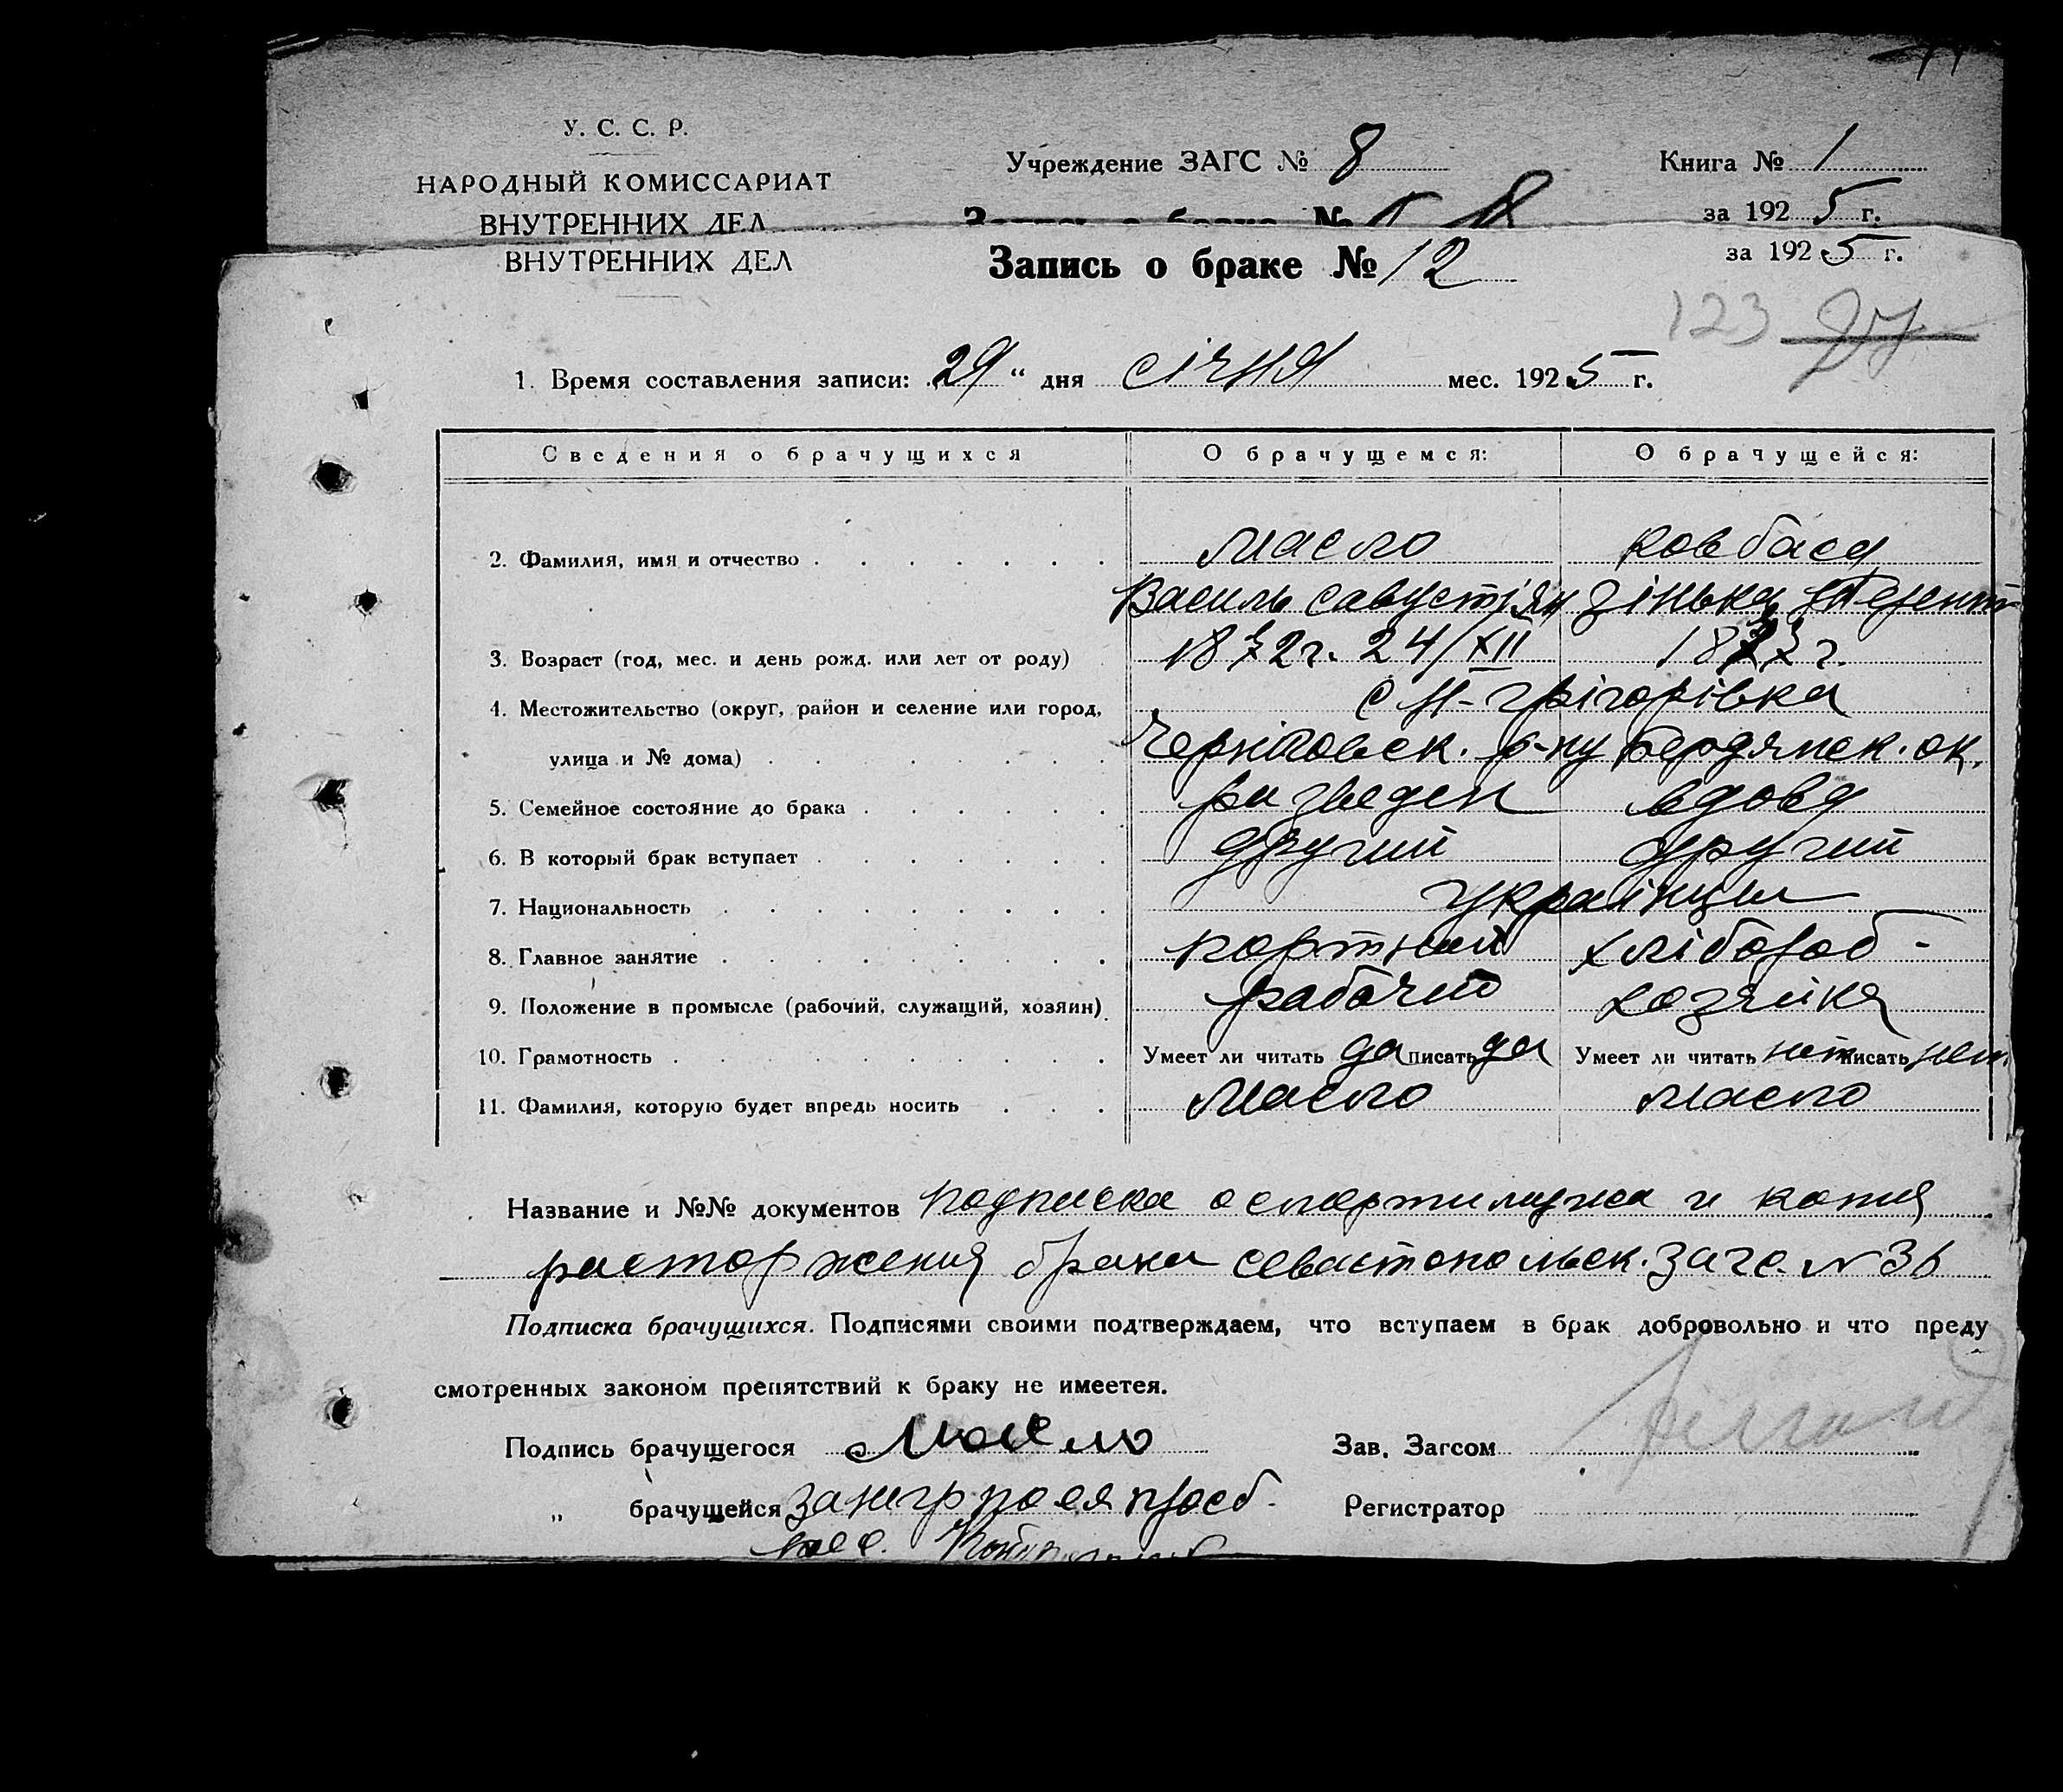 У. С. С. Р.
НАРОДНЫЙ КОМИССАРИАТ
ВНУТРЕННИХ ДЕЛ
Учреждение ЗАГС № 8
Книга № 1
за 1925 г.
ВНУТРЕННИХ ДЕЛ
Запись о браке № 12
за 1925 г.
123 27
1. Время составления записи: 29 " дня січня мес. 1925 г.
Сведения о брачущихся О брачущемся: О брачущейся:
2. Фамилия, имя и отчество Масло Ковбаса
Василь Савустіян Зінька
3. Возраст (год, мес. и день рожд. или лет от роду) 1872 г. 24/XII 1873 г.
4. Местожительство (округ, район и селение или город, с Н-Грігорівка
улица и № дома) Черніговск. р-ну Бердянск. ок.
5. Семейное состояние до брака разведен вдова
6. В который брак вступает другий другий
7. Национальность українци
8. Главное занятие портной хлібороб-
9. Положение в промысле (рабочий, служащий, хозяин) рабочий хозяйка
10. Грамотность Умеет ли читать да писать да Умеет ли читать нет писать нет.
11. Фамилия, которую будет впредь носить Масло Масло
Название и №№ документов подписка о смерти мужа и копия
расторжения брака севастопольск. загс. N 36
Подписка брачущихся. Подписями своими подтверждаем, что вступаем в брак добровольно и что преду
смотренных законом препятствий к браку не имеетея.
Подпись брачущегося Масло Зав. Загсом
" брачущейся за негр по ея прозб. Регистратор